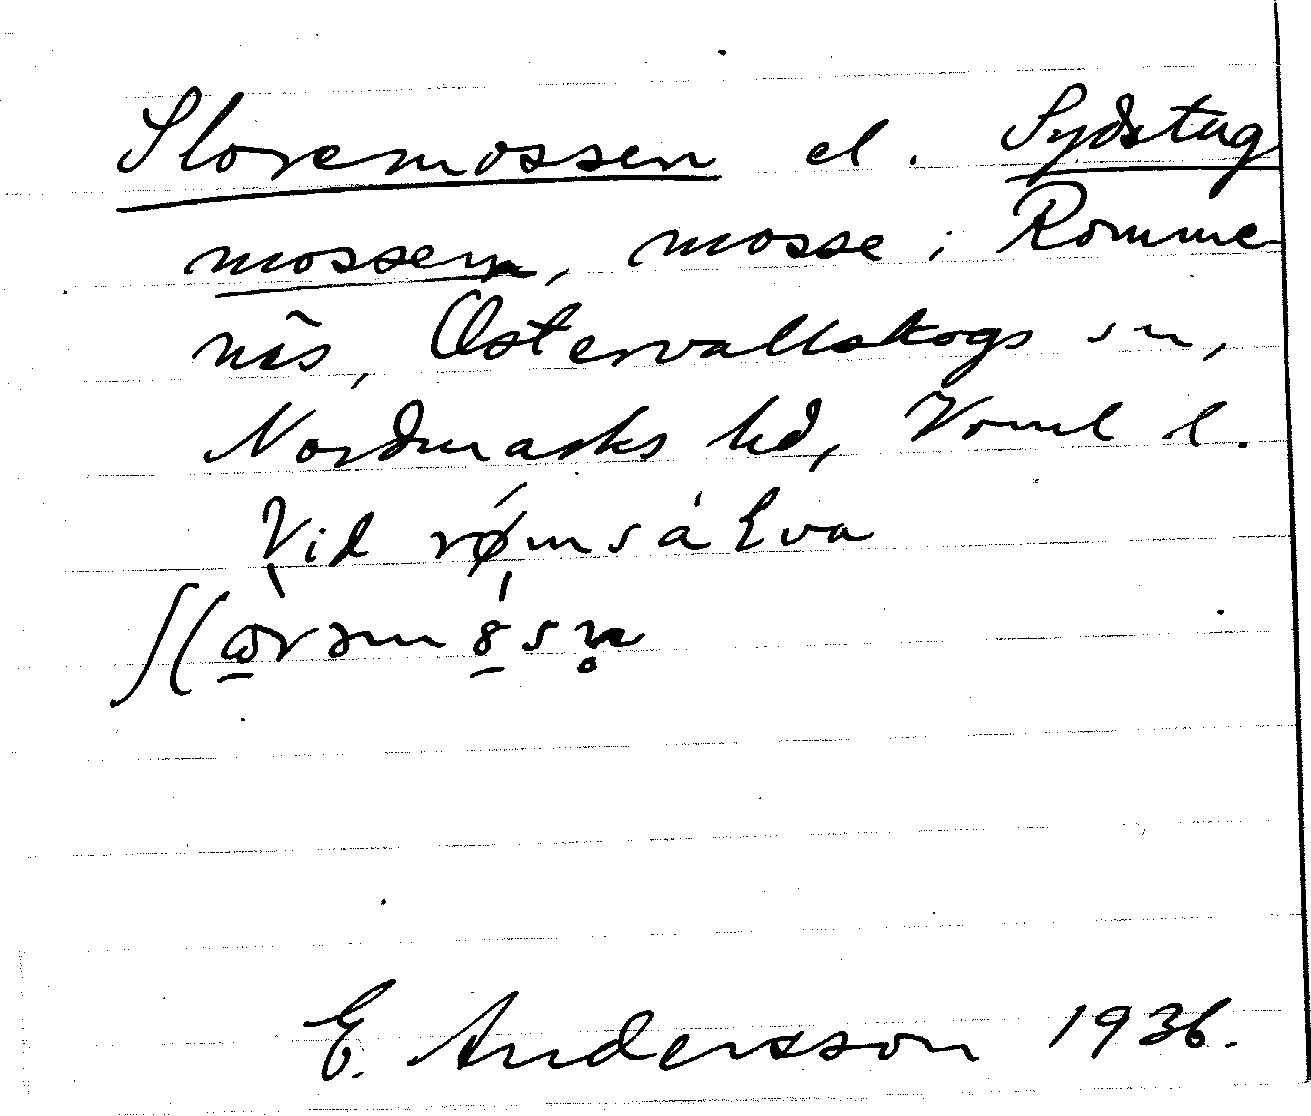 Sloremossen el. Sydstug
mossen, mosse i Romme
näs, Östervallskogs sn,
Nordmarks hd, Värml l.
Vid
E. Andersson 1936.